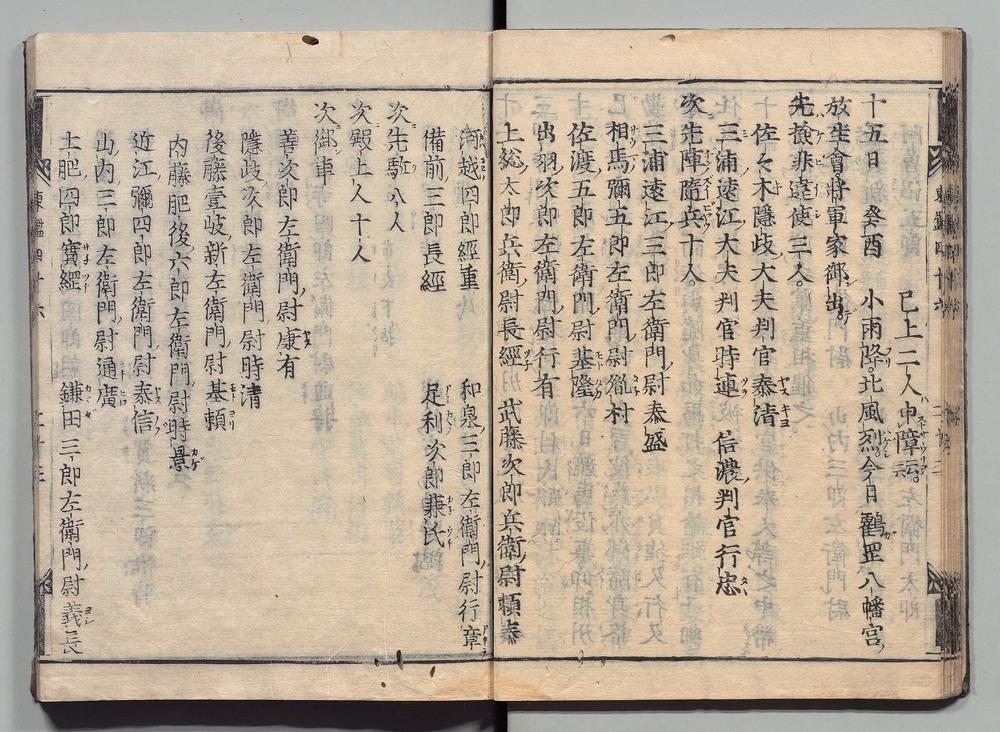 已上二人申障云云
十五日 癸酉 小雨降。北風烈今日鶴岡八幡宮
放生會將軍家御出。
先撿非違使三人。
佐々木隠岐大夫判官泰清
三浦遠江大夫判官時連 信濃判官行忠
次先陣隨兵十人。
三浦遠江三郎左衛門尉泰盛
相馬彌五郎左衛門尉胤村
佐渡五郎左衛門尉基隆
出羽次郎左衛門尉行有
上総太郎兵衛尉長經 武藤次郎兵衛尉頼泰
河越四郎經重 和泉三郎左衛門尉行章
備前三郎長經 足利次郎兼氏
次先駈八人
次殿上人十人
次御車
善次郎左衛門尉康有
隠岐次郎左衛門尉時清
後藤壹岐新左衛門尉基頼
内藤肥後六郎左衛門尉時景
近江彌四郎左衛門尉泰信
山内三郎左衛門尉通廣
土肥四郎實經 鎌田三郎左衛門尉義長
東鑑四十六